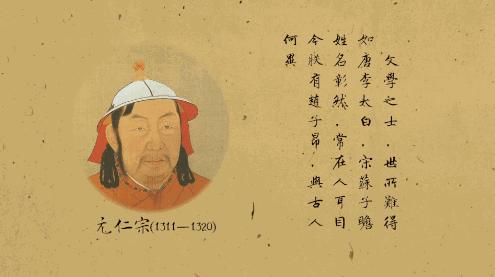 文學之士．世所難得
如唐李太白．宋蘇子瞻
姓名彰然．常在人耳目
今朕有趙子昂．與古人
何異
元仁宗(1311—1320)